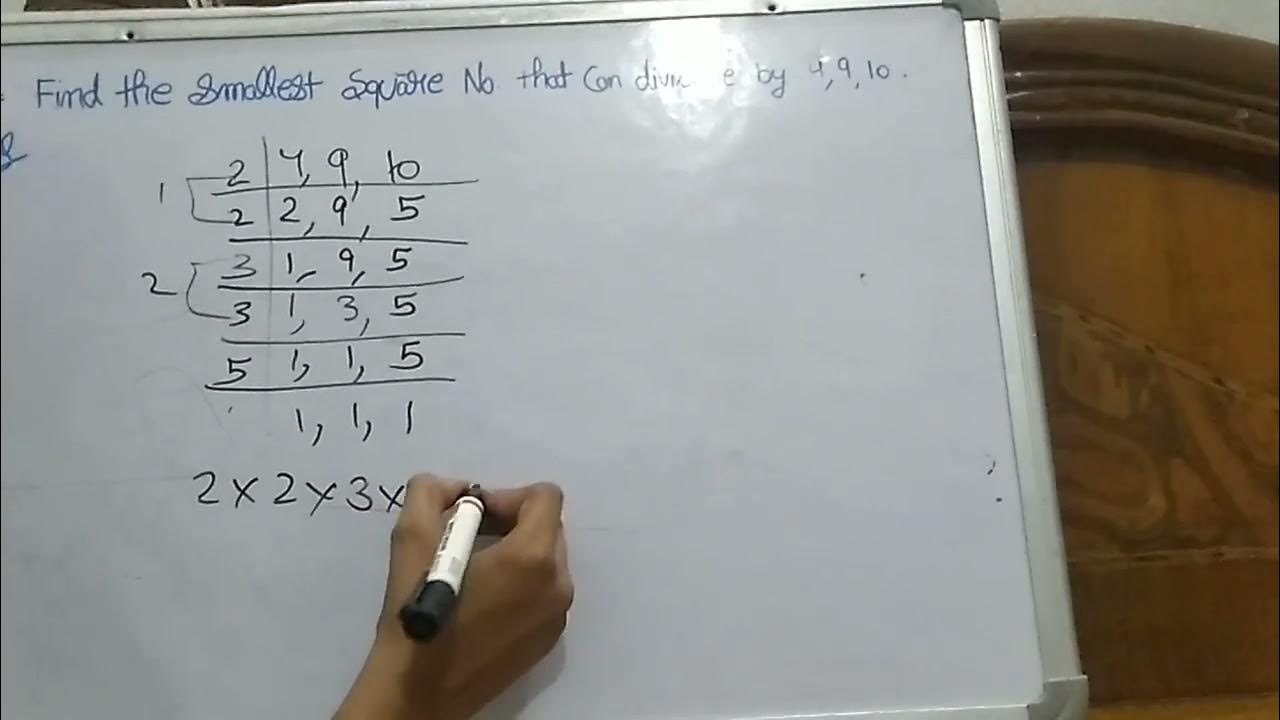 Find the Smallest Square No that Can divi e by 4, 9, 10.
2 | 4, 9, 10
1 2 | 2, 9, 5
3 | 1, 9, 5
2 3 | 1, 3, 5
5 | 1, 1, 5
1, 1, 1
2 x 2 x 3 x